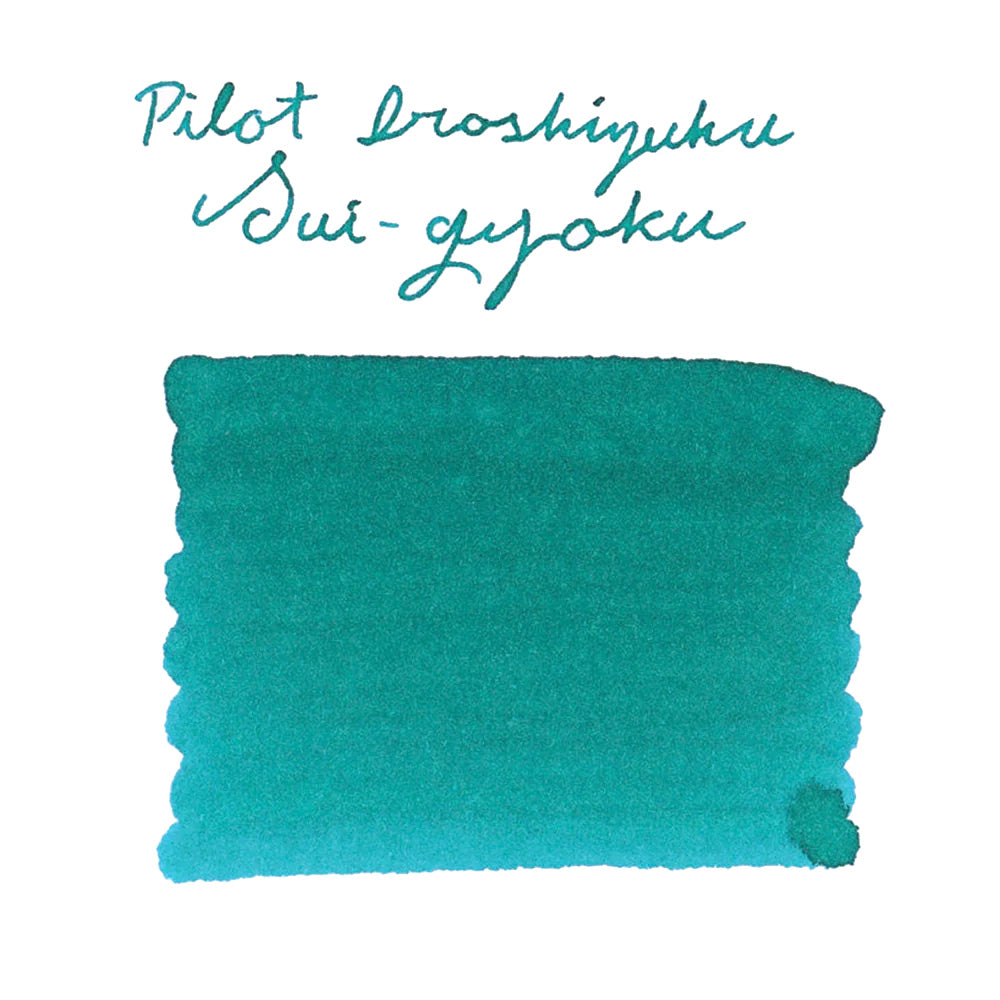 Pilot Iroshizuku
Sui-gyoku